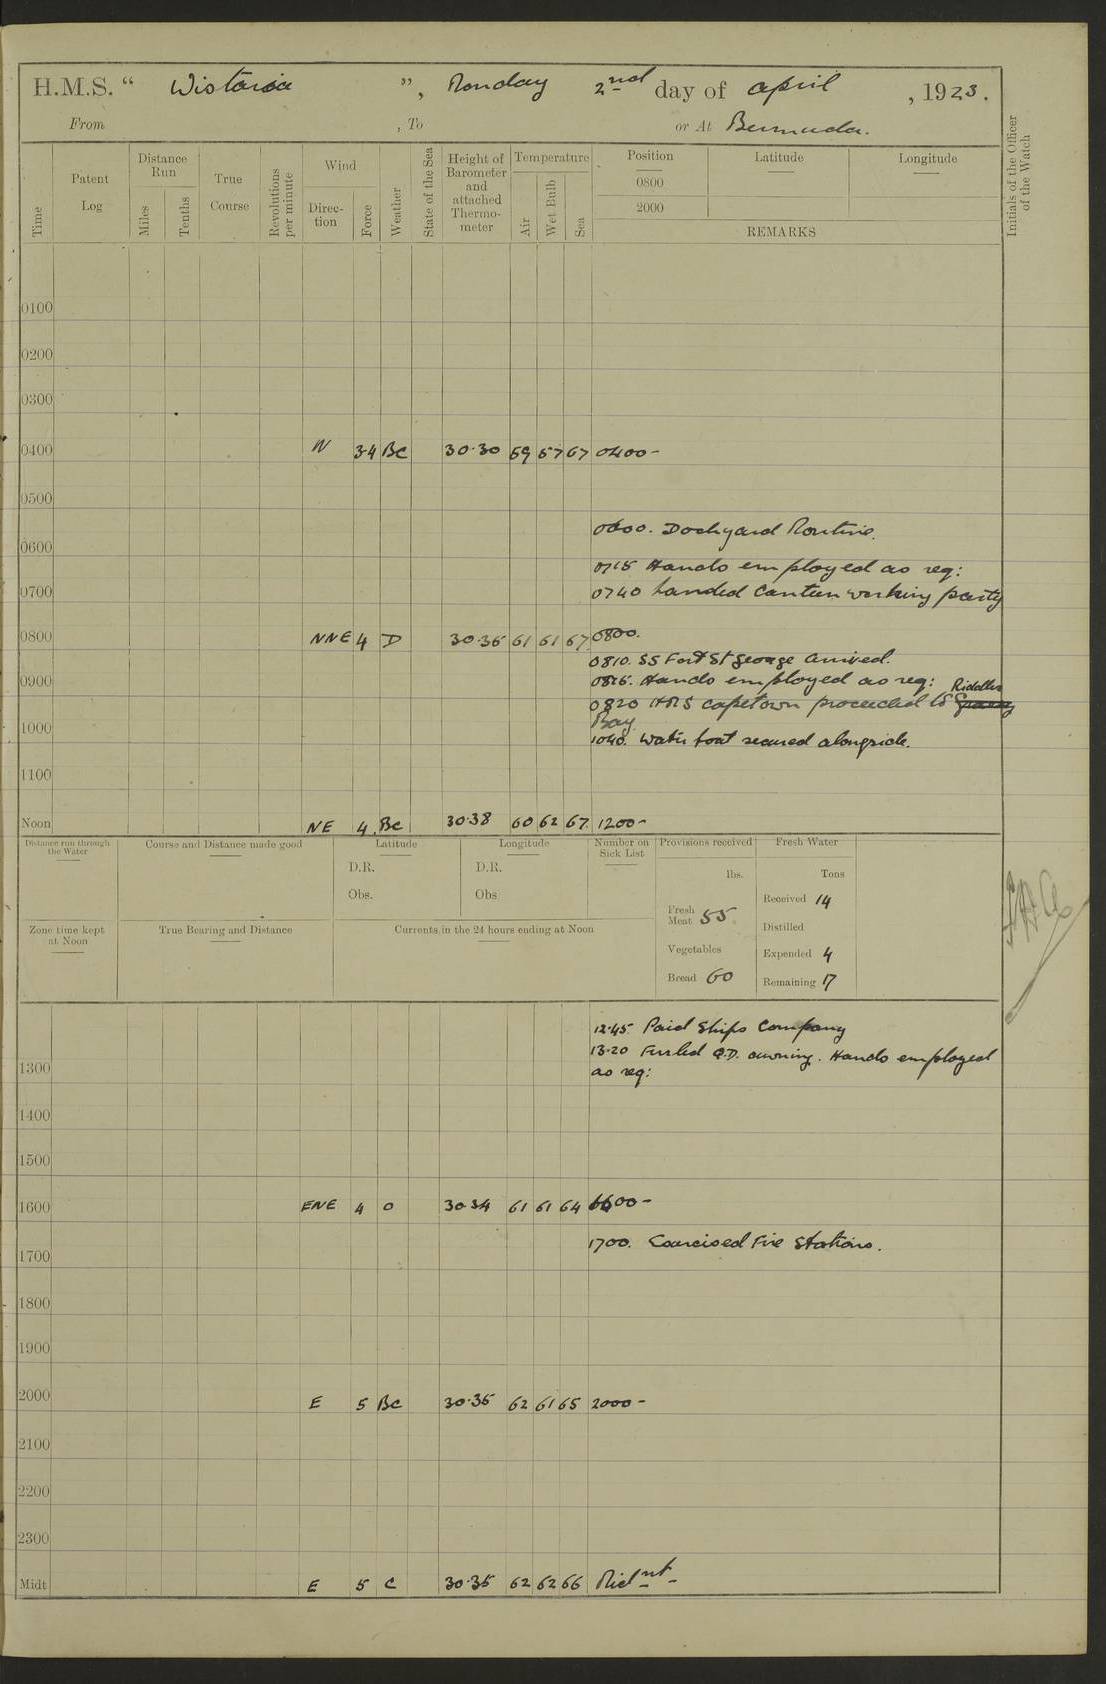 H.M.S. “ Wistaria ”, Monday 2nd day of April, 1923.
From , To or At Bermuda.
Time
Patent Log
Distance Run
Miles
Tenths
True Course
Revolutions per minute
Wind
Direc-tion
Force
Weather
State of the Sea
Height of Barometer and attached Thermo-meter
Temperature
Air
Wet Bulb
Sea
Position
0800
2000
Latitude
Longitude
REMARKS
Initials of the Officer of the Watch
0100
0200
0300
0400 N 3-4 BC 30·30 59 57 67 0400-
0500
0600. Dockyard Routine.
0600
0715 Hands employed as req:
0700 0740 Landed Canteen working party
0800 NNE 4 D 30·36 61 61 67 0800.
0810. SS Fort St George arrived.
0900 0815. Hands employed as req: Riddles
0820 HMS Capetown proceeded to Grassy
Bay
1000
1040. Water boat secured alongside.
1100
Noon NE 4 BC 30·38 60 62 67 1200-
Distance run through the Water
Course and Distance made good
Latitude
D.R.
Obs.
Longitude
D.R.
Obs
Number on Sick List
Provisions received
lbs.
Fresh Meat 55
Vegetables
Bread 60
Fresh Water
Tons
Received 14
Distilled
Expended 4
Remaining 17
Zone time kept at Noon
True Bearing and Distance
Currents in the 24 hours ending at Noon
12·45 Paid Ships Company
13·20 Furled Q.D. awning. Hands employed
1300 as req:
1400
1500
1600 ENE 4 O 30·34 61 61 64 1600-
1700. Exercised Fire Stations.
1700
1800
1900
2000 E 5 BC 30·35 62 61 65 2000-
2100
2200
2300
Midt E 5 C 30·35 62 62 66 Midnt-